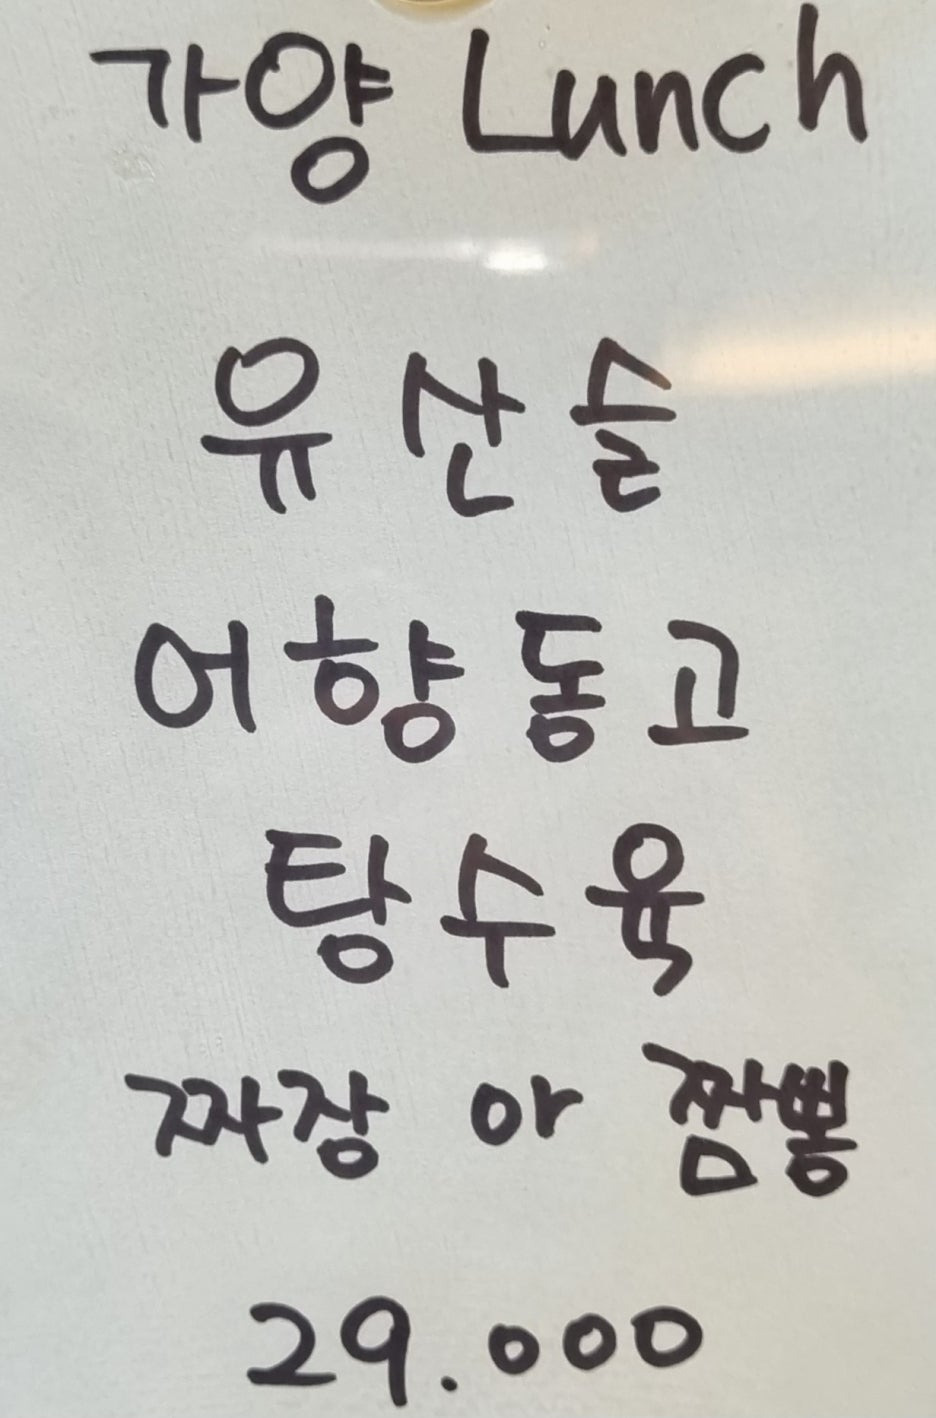 가양 Lunch
유산슬
어향동고
탕수육
짜장 or 짬뽕
29.000